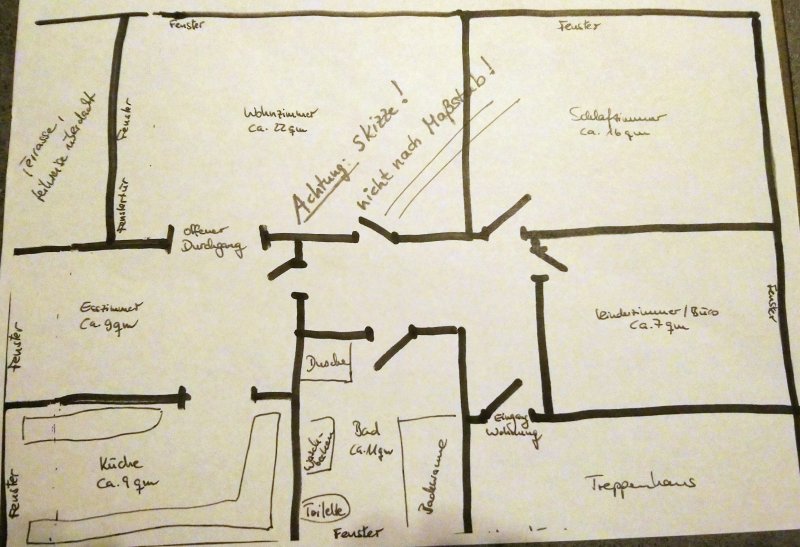 Fenster
Fenster
Terrasse,
teilweise überdacht
Fenster
Fenstertür
Wohnzimmer
ca. 22 qm
Achtung: Skizze!
nicht nach Maßstab!
Schlafzimmer
ca. 16 qm
offener
Durchgang
Esszimmer
ca. 9 qm
Fenster
Kinderzimmer/Büro
ca. 7 qm
Fenster
Dusche
Eingang
Wohnung
Küche
ca. 9 qm
Fenster
Waschbecken
Bad
ca. 11 qm
Badewanne
Toilette
Fenster
Treppenhaus